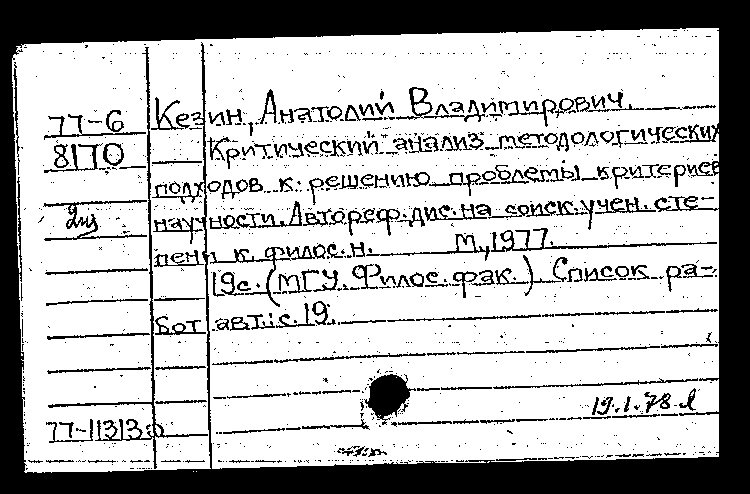 77-6 Кезин, Анатолий Владимирович.
8170 Критический анализ методологических
подходов к решению проблемы критериев
научности. Автореф. дис. на соиск. учен. сте-
пени к. филос. н. М., 1977.
19с. (МГУ. Филос. фак.). Список ра-
бот авт.: с. 19.
19.1.78
77-11313